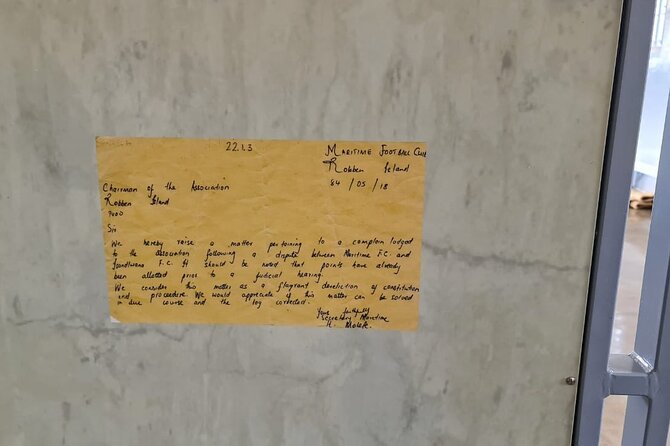 22.1.3
MARITIME FOOTBALL CLUB
Robben Island
84 / 05 / 18
Chairman of the Association
Robben Island
7400
Sir
We hereby raise a matter pertaining to a complain lodged
to the association following a dispute between Maritime F.C. and
F.C. It should be noted that points have already
been allotted prior to a judicial hearing.
We consider this matter as a flagrant dereliction of constitution
and procedure. We would appreciate if this matter can be solved
in due course and the log corrected.
Yours faithfully
Secretary Maritime